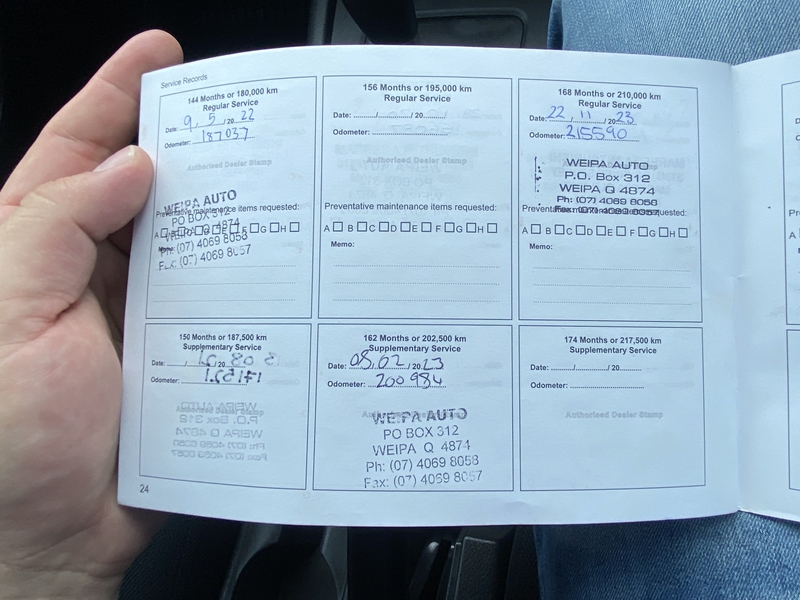 Service Records
144 Months or 180,000 km
Regular Service
Date: 9 / 5 / 20 22
Odometer: 187037
Authorised Dealer Stamp
WEIPA AUTO
PO BOX 312
Preventative maintenance items requested:
WEIPA Q 4874
A B C D E F G H
Memo:
Ph: (07) 4069 8058
Fax: (07) 4069 8057
156 Months or 195,000 km
Regular Service
Date: ......../......../20........
Odometer: ................................
Authorised Dealer Stamp
Preventative maintenance items requested:
A B C D E F G H
Memo:
168 Months or 210,000 km
Regular Service
Date: 22 / 11 / 20 23
Odometer: 215590
WEIPA AUTO
P.O. Box 312
WEIPA Q 4874
Ph: (07) 4069 8058
Fax: (07) 4069 8057
Preventative maintenance items requested:
A B C D E F G H
Memo:
150 Months or 187,500 km
Supplementary Service
Date: ......../......../20
Odometer:
Authorised Dealer Stamp
162 Months or 202,500 km
Supplementary Service
Date: 08 / 02 / 20 23
Odometer: 200984
WEIPA AUTO
PO BOX 312
WEIPA Q 4874
Ph: (07) 4069 8058
Fax: (07) 4069 8057
174 Months or 217,500 km
Supplementary Service
Date: ......../......../20........
Odometer: ................................
Authorised Dealer Stamp
24